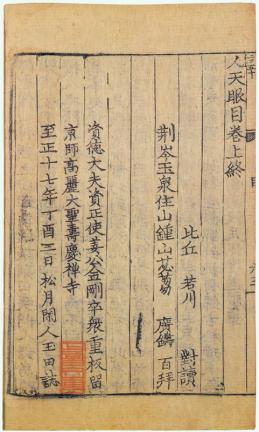 人天眼目卷上終
比丘 若川 對讀
荆岑玉泉住山鍾山苾蒭 廣鑄 百拜
資德大夫資正使姜公金剛卒般重板留
京師高麗大聖壽慶禪寺
至正十七年丁酉三日松月閑人玉田誌